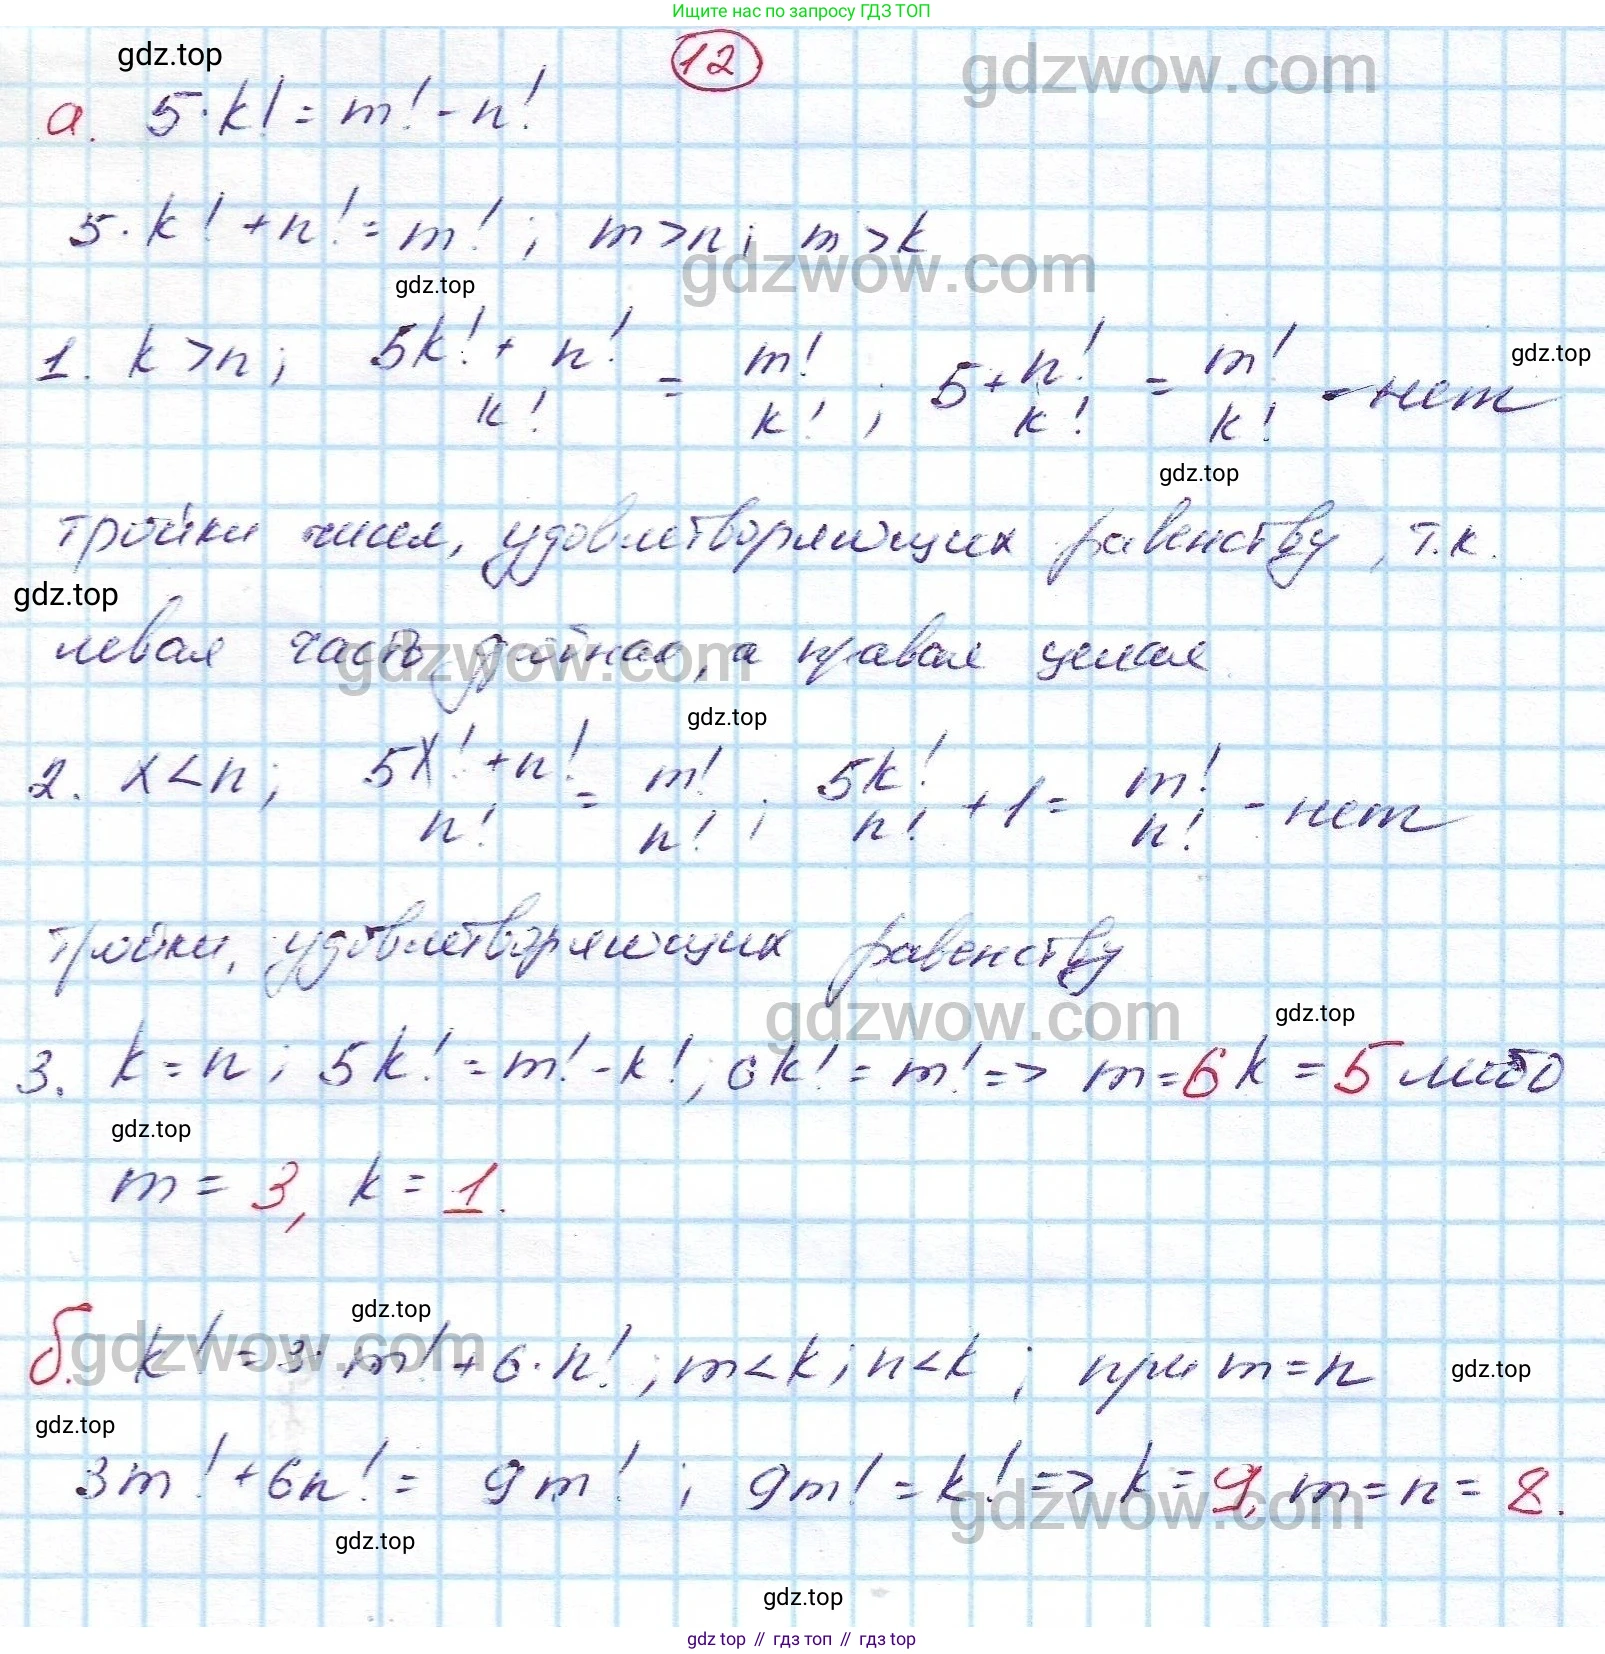 Ищите нас по запросу ГДЗ ТОП
gdz.top
12
gdzwow.com
а. 5·k! = m! - n!
5·k! + n! = m! ; m > n; m > k
gdzwow.com
gdz.top
1. k > n; (5k! + n!)/k! = m!/k! ; 5 + n!/k! = m!/k! - нет
gdz.top
gdz.top
тройки чисел, удовлетворяющих равенству, т.к.
gdz.top
левая часть дробная, а правая целая
gdzwow.com
gdz.top
2. x < n; (5x! + n!)/n! = m!/n! ; 5k!/n! + 1 = m!/n! - нет
тройки, удовлетворяющих равенству
gdzwow.com
gdz.top
3. k = n; 5k! = m! - k!; 6k! = m! => m = 6 k = 5 либо
gdz.top
m = 3, k = 1.
gdz.top
gdzwow.com
б. k! = 3·m! + 6·n! ; m < k; n < k ; при m = n
gdz.top
gdz.top
3m! + 6n! = 9m! ; 9m! = k! => k = 9, m = n = 8.
gdzwow.com
gdz.top
gdz.top
gdz top // гдз топ // гдз top